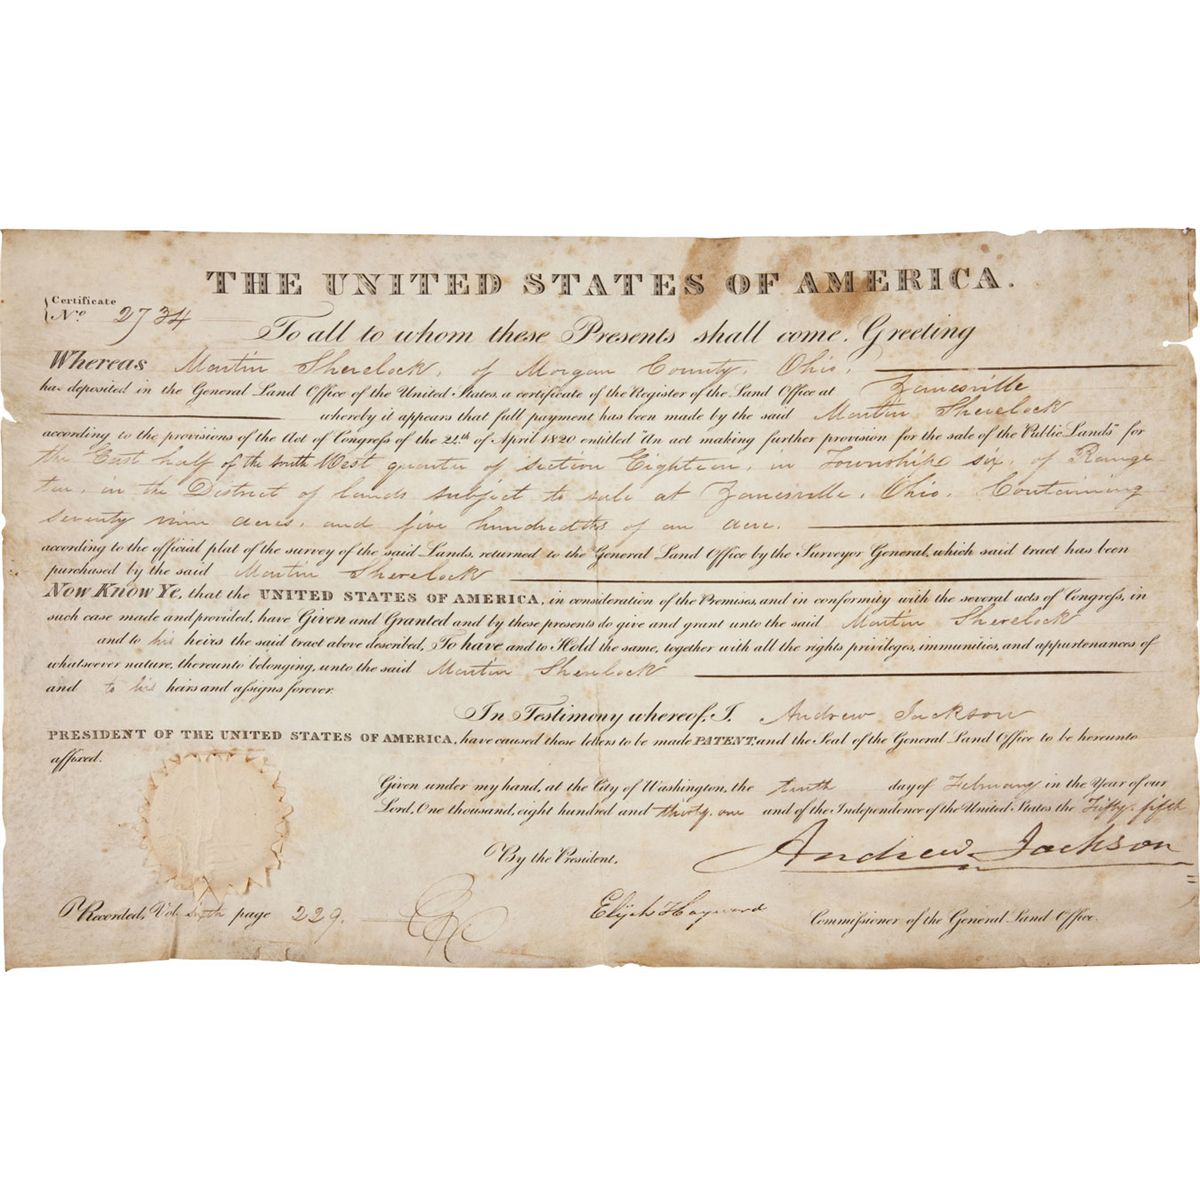 THE UNITED STATES OF AMERICA.
Certificate
No. 2734
To all to whom these Presents shall come, Greeting
Whereas Martin Sherelock, of Morgan County, Ohio,
has deposited in the General Land Office of the United States, a certificate of the Register of the Land Office at Zanesville
whereby it appears that full payment has been made by the said Martin Sherelock
according to the provisions of the Act of Congress of the 24th of April 1820 entitled "An act making further provision for the sale of the Public Lands" for
the East half of the South West quarter of section Eighteen, in Township six, of Range
ten, in the District of lands subject to sale at Zanesville, Ohio, Containing
seventy nine acres, and five hundredths of an acre.
according to the official plat of the survey of the said Lands, returned to the General Land Office by the Surveyor General, which said tract has been
purchased by the said Martin Sherelock
Now Know Ye, that the UNITED STATES OF AMERICA, in consideration of the Premises, and in conformity with the several acts of Congress, in
such case made and provided, have Given and Granted and by these presents do give and grant unto the said Martin Sherelock
and to his heirs the said tract above described, To have and to Hold the same, together with all the rights privileges, immunities, and appurtenances of
whatsoever nature, thereunto belonging, unto the said Martin Sherelock
and to his heirs and assigns forever.
In Testimony whereof, I, Andrew Jackson
PRESIDENT OF THE UNITED STATES OF AMERICA, have caused these letters to be made PATENT, and the Seal of the General Land Office to be hereunto
affixed.
Given under my hand, at the City of Washington, the tenth day of February in the Year of our
Lord, One thousand, eight hundred and thirty one and of the Independence of the United States the Fifty fifth
By the President, Andrew Jackson
Elijah Hayward Commissioner of the General Land Office.
Recorded, Vol. sixth page 229.